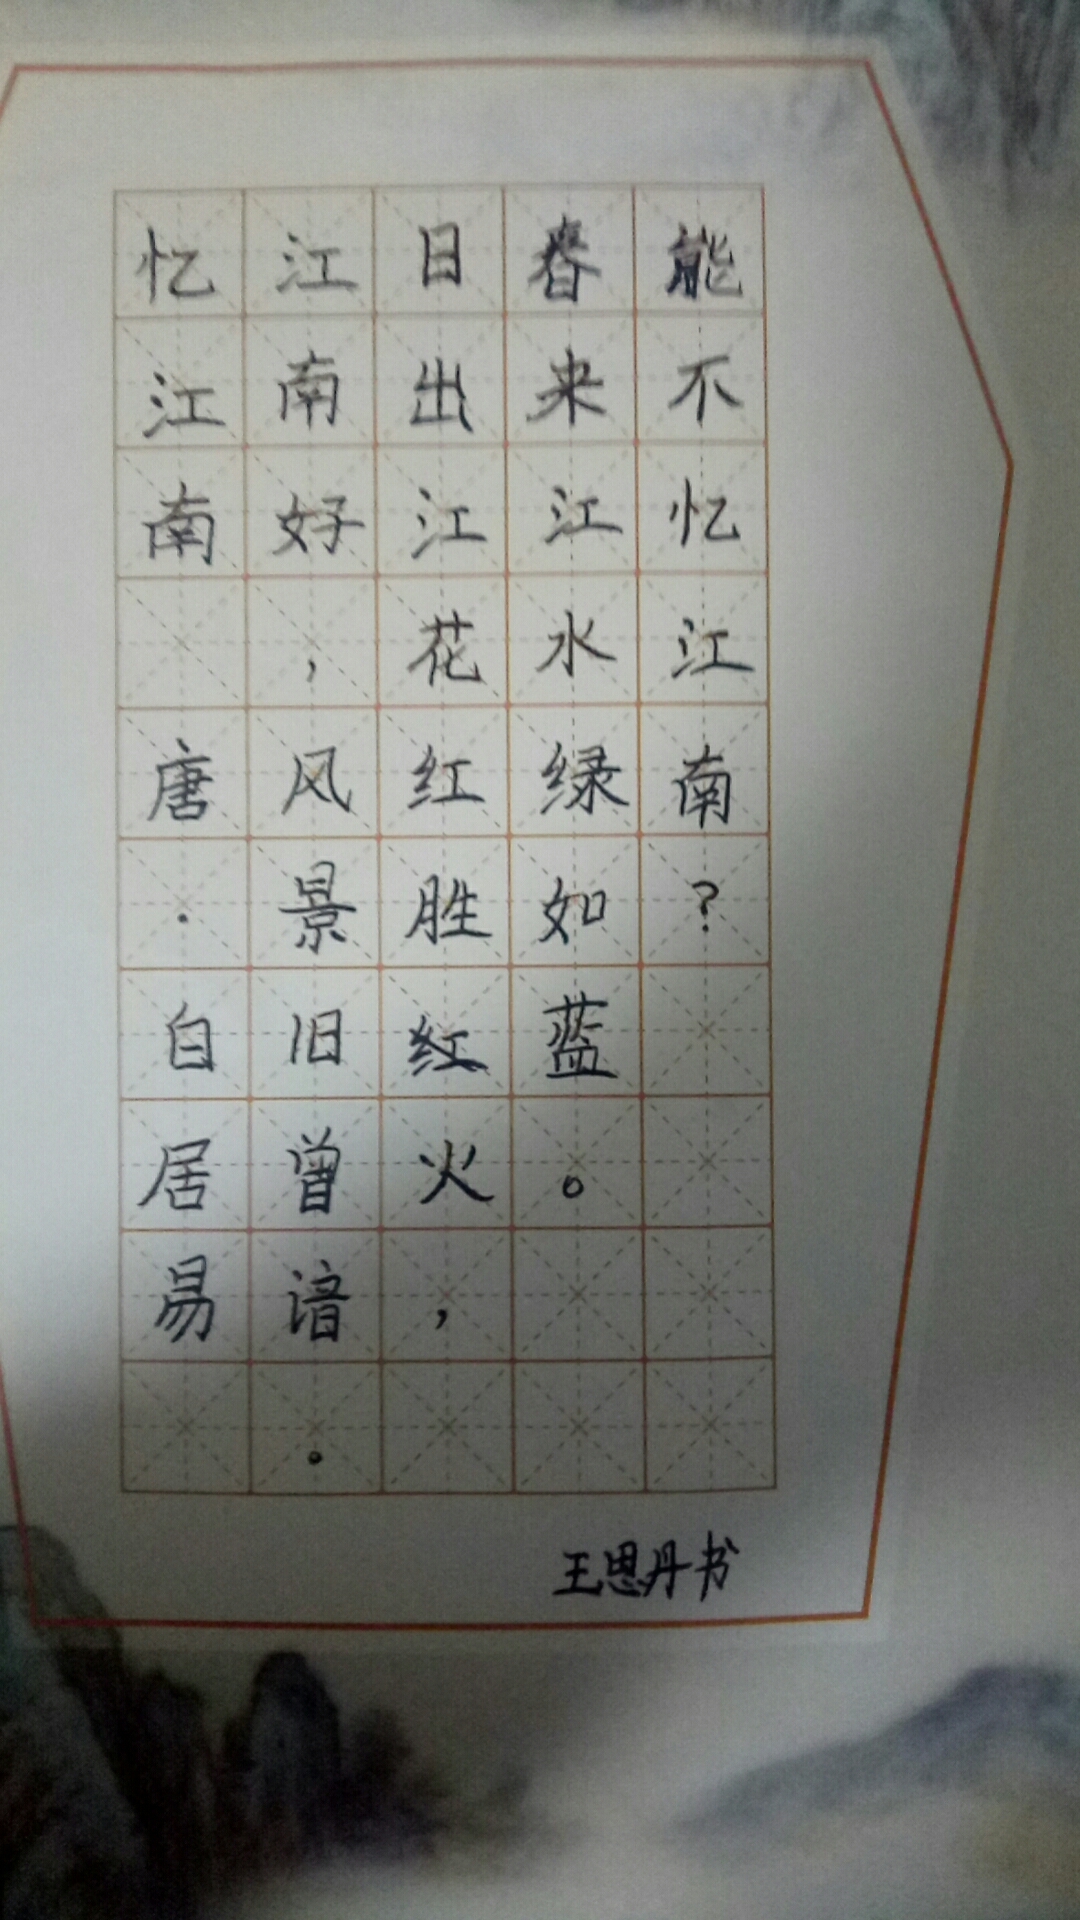 忆江南 唐·白居易
江南好，风景旧曾谙。
日出江花红胜红火，
春来江水绿如蓝。
能不忆江南？
王思丹书